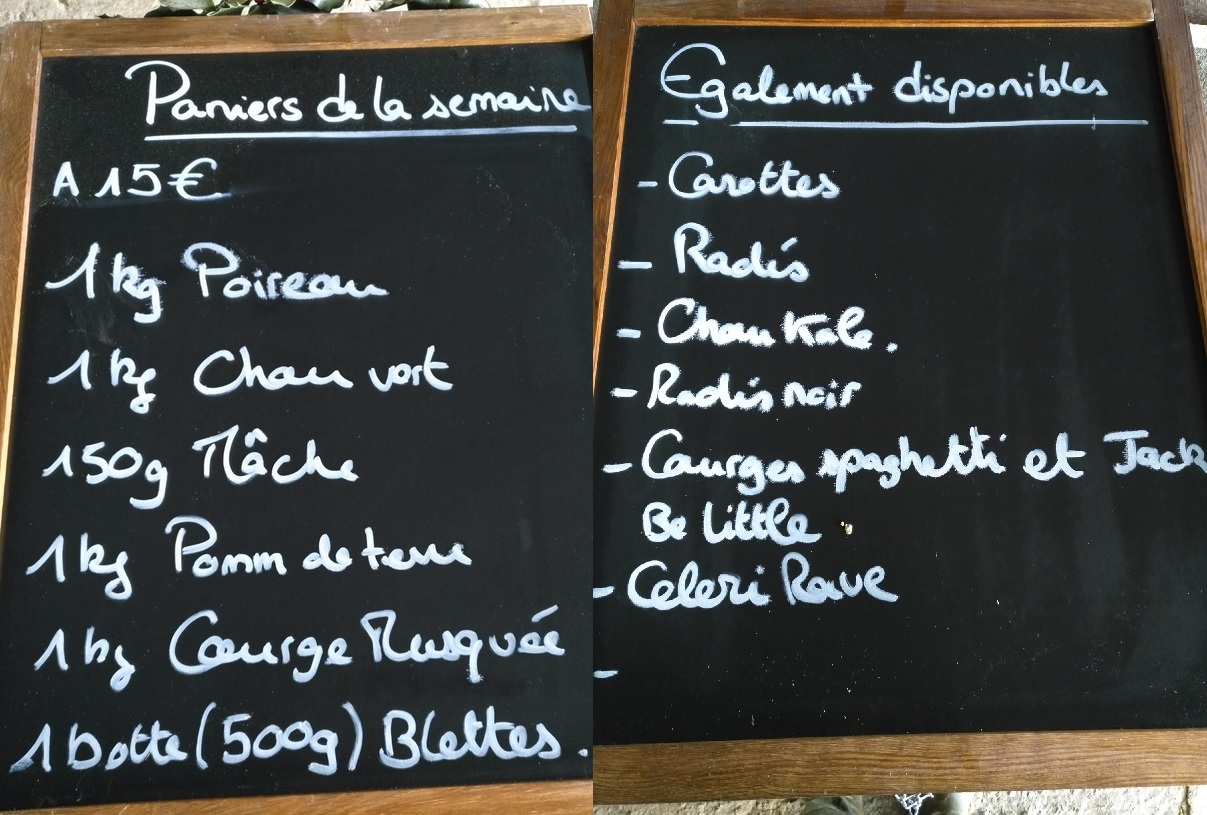 Paniers de la semaine
A 15€
1 kg Poireau
1 kg Chou vert
150g Mâche
1 kg Pomm de terre
1 kg Courge Musquée
1 botte (500g) Blettes.
Egalement disponibles
- Carottes
- Radis
- Chou Kale.
- Radis noir
- Courges spaghetti et Jack
Be Little
- Celeri Rave
-